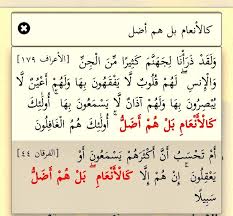 كالأنعام بل هم أضل
وَلَقَدْ ذَرَأْنَا لِجَهَنَّمَ كَثِيرًا مِّنَ الْجِنِّ [الأعراف ١٧٩]
وَالْإِنسِ ۖ لَهُمْ قُلُوبٌ لَّا يَفْقَهُونَ بِهَا وَلَهُمْ أَعْيُنٌ لَّا
يُبْصِرُونَ بِهَا وَلَهُمْ آذَانٌ لَّا يَسْمَعُونَ بِهَا ۚ أُولَٰئِكَ
كَالْأَنْعَامِ بَلْ هُمْ أَضَلُّ ۚ أُولَٰئِكَ هُمُ الْغَافِلُونَ
أَمْ تَحْسَبُ أَنَّ أَكْثَرَهُمْ يَسْمَعُونَ أَوْ [الفرقان ٤٤]
يَعْقِلُونَ ۚ إِنْ هُمْ إِلَّا كَالْأَنْعَامِ ۖ بَلْ هُمْ أَضَلُّ
سَبِيلًا